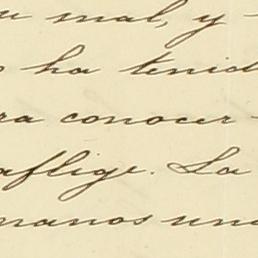 u mal, y
o ha tenid
ra conocer
aflige. La
manos una